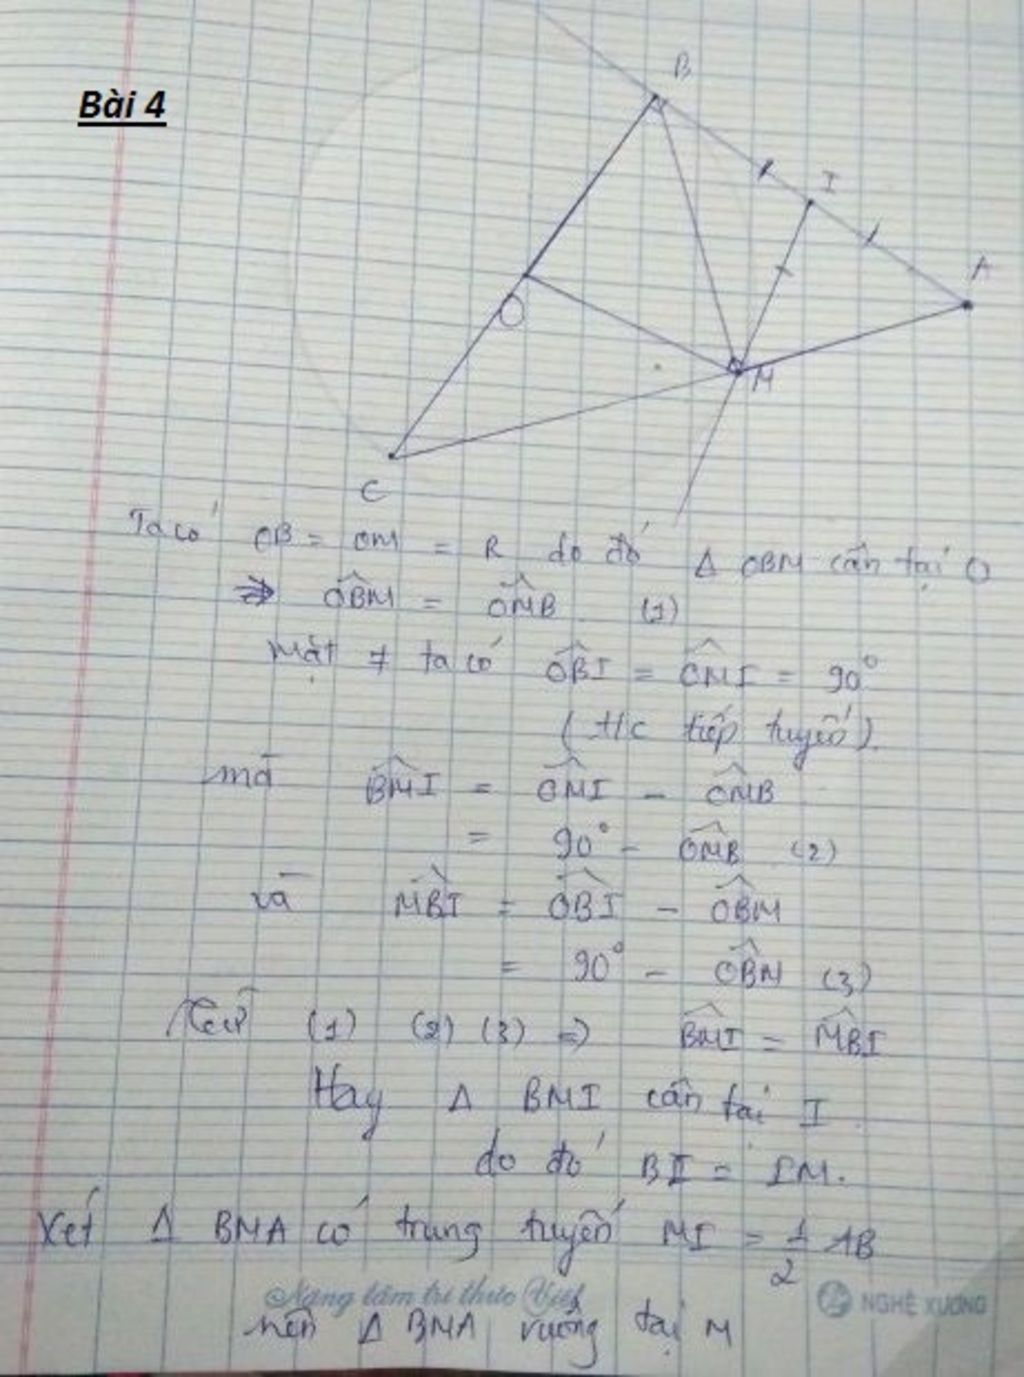 Bài 4
B
I
A
O
M
C
Ta có OB = OM = R do đó Δ OBM cân tại O
=> OBM = OMB (1)
Mặt ≠ ta có OBI = OMI = 90°
(t/c tiếp tuyến)
mà BMI = OMI - OMB
= 90° - OMB (2)
và MBI = OBI - OBM
= 90° - OBM (3)
Từ (1) (2) (3) => BMI = MBI
Hay Δ BMI cân tại I
do đó BI = IM.
Xét Δ BMA có trung tuyến MI = 1/2 AB
Nâng tầm tri thức Việt NGHÊ XƯƠNG
nên Δ BMA vuông tại M